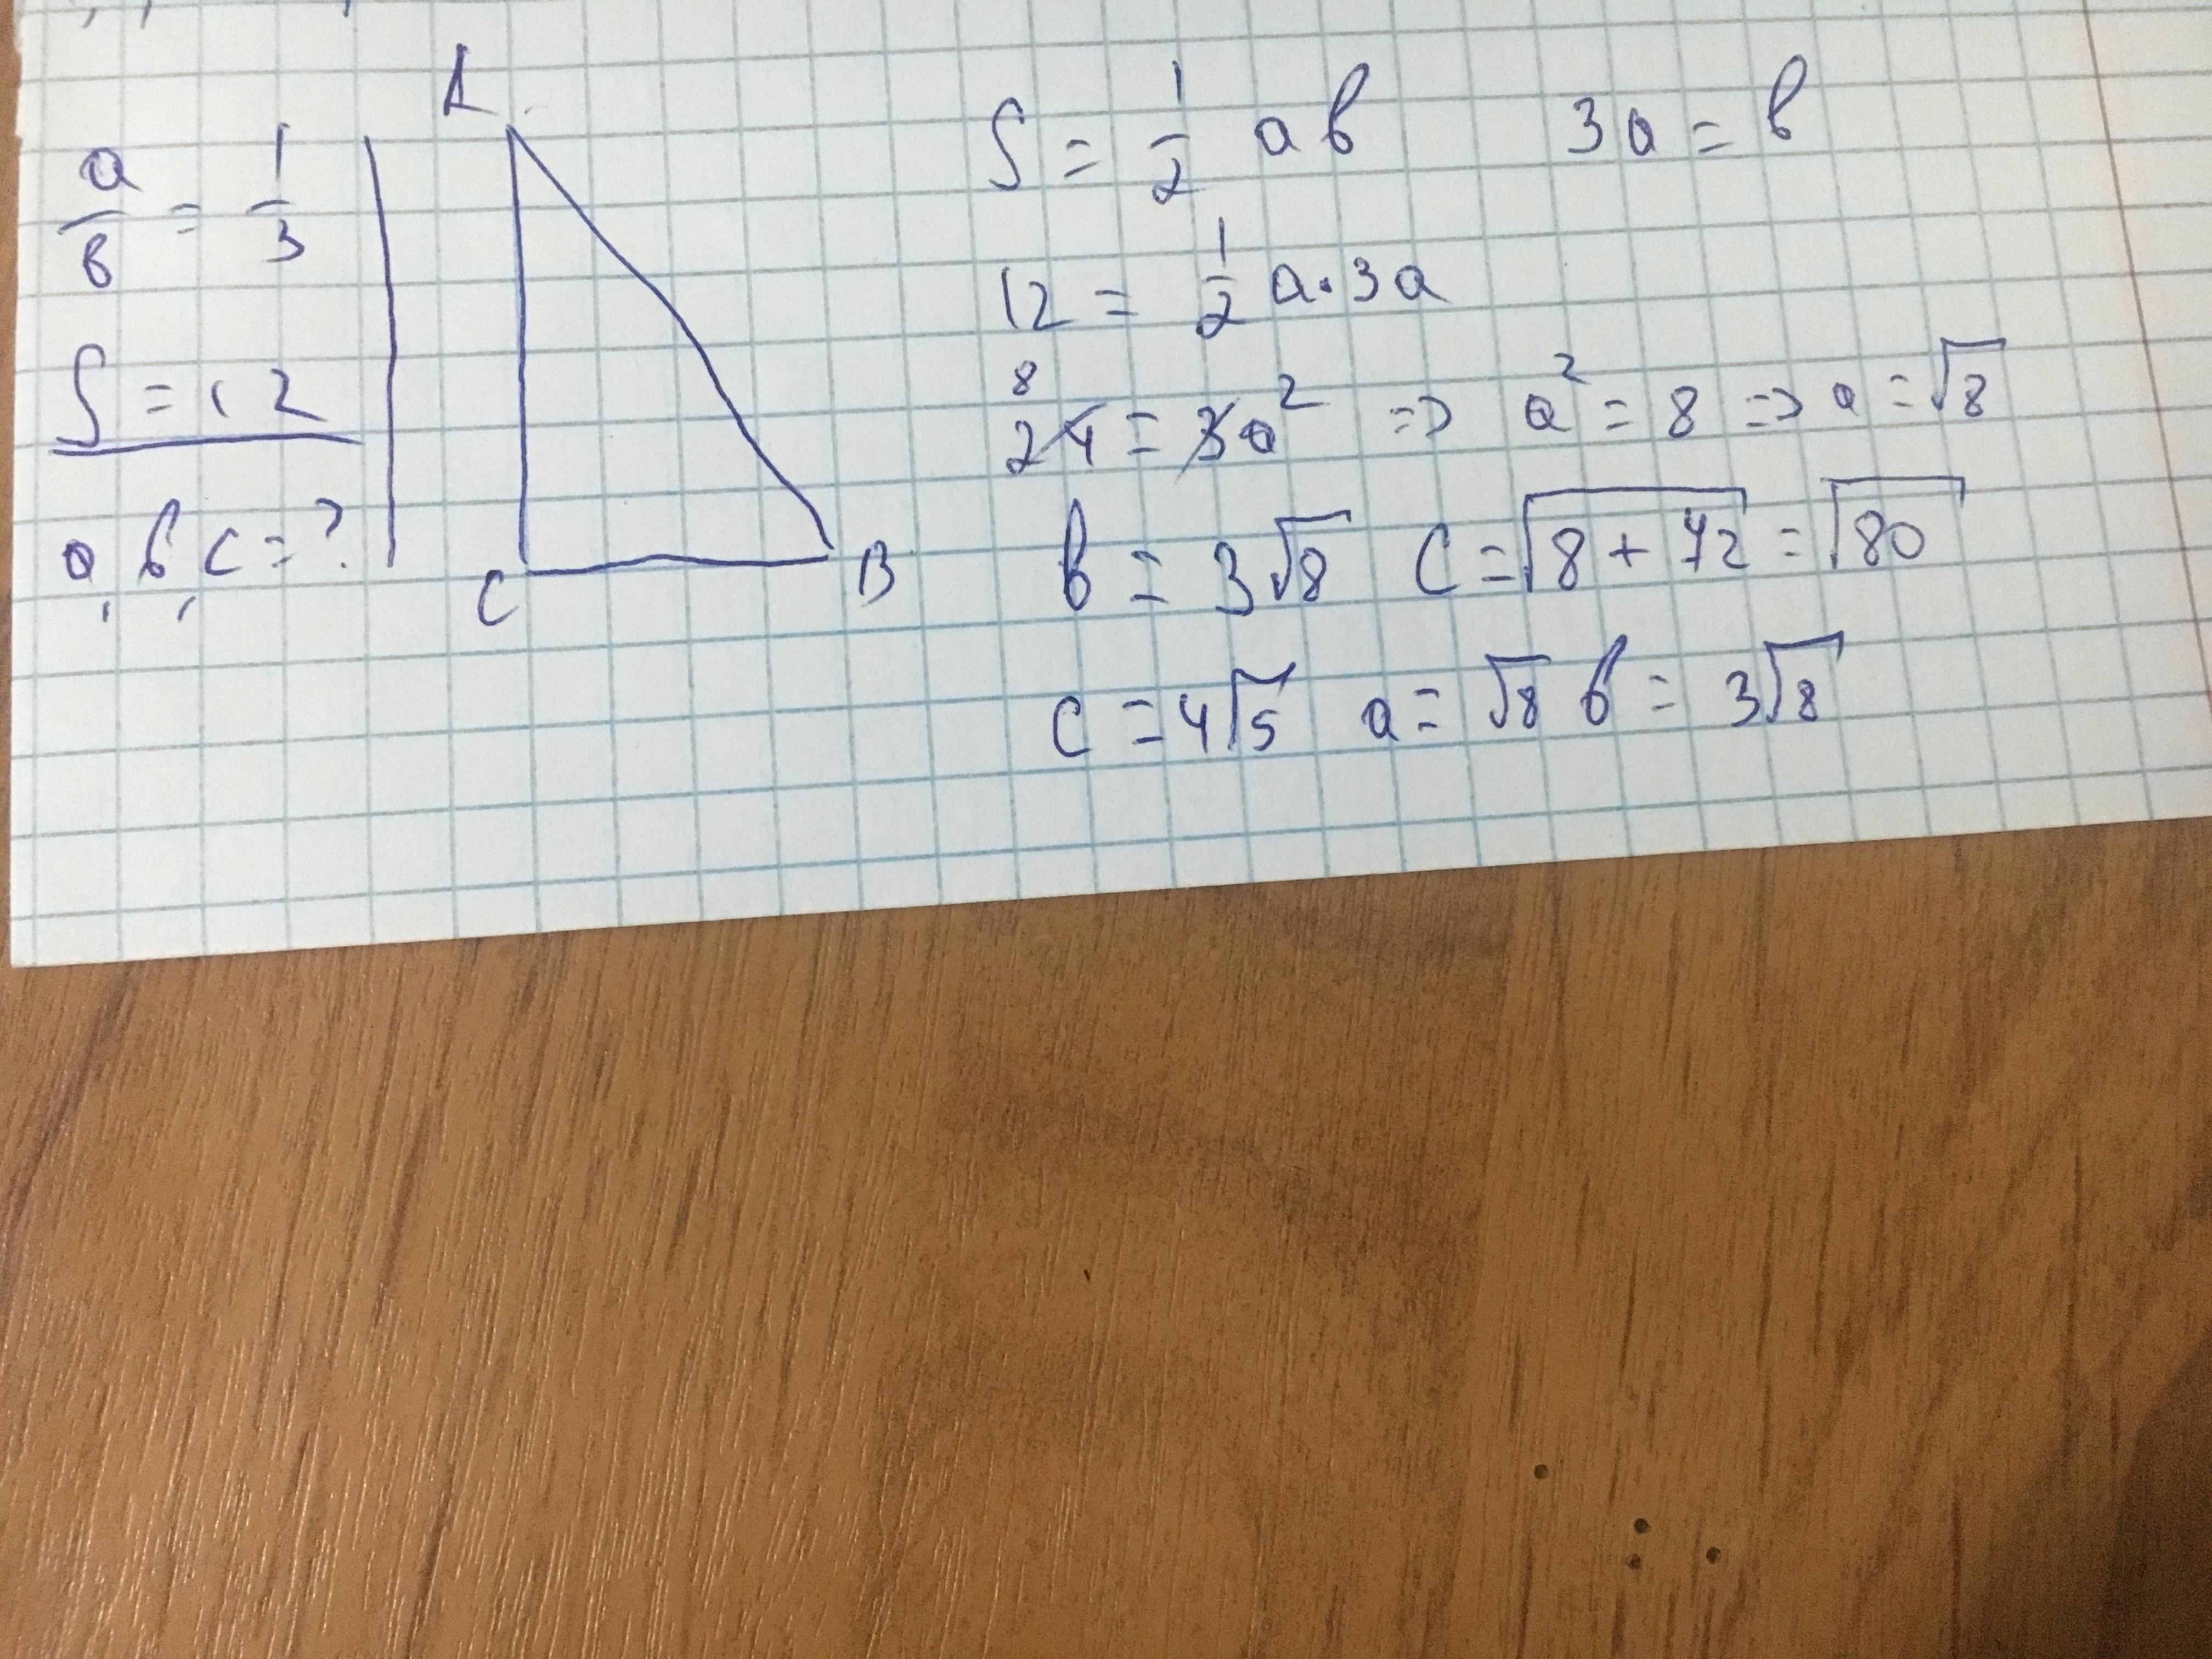 a/b = 1/3
S = 12
a, b, c = ?
A
C
B
S = 1/2 ab    3a = b
12 = 1/2 a·3a
8
24 = 3a² => a² = 8 => a = √8
b = 3√8  c = √(8 + 72) = √80
c = 4√5  a = √8  b = 3√8